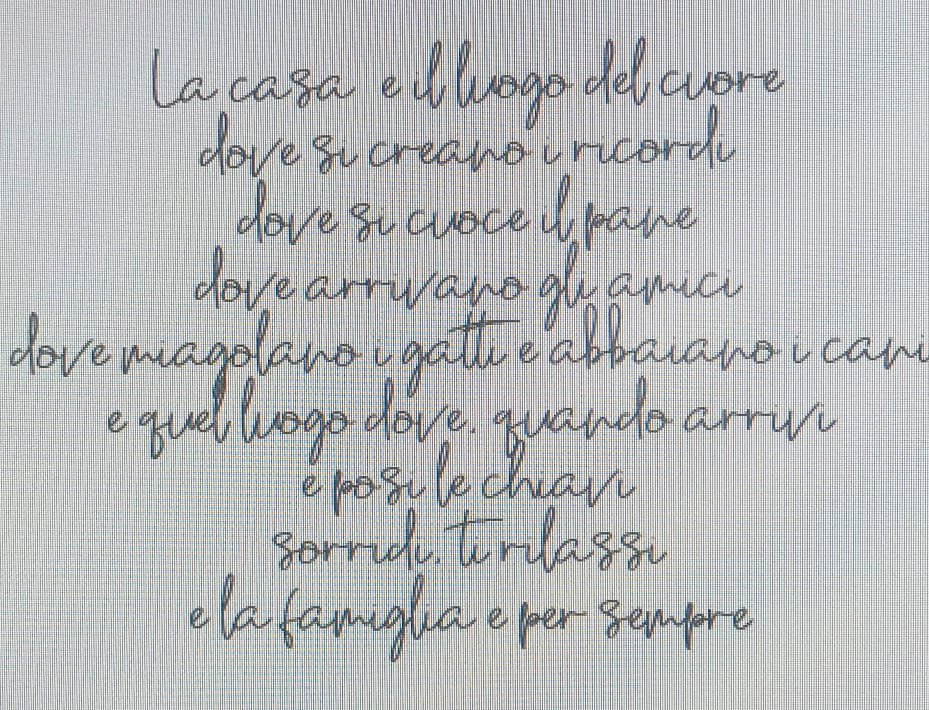 La casa e il luogo del cuore
dove si creano i ricordi
dove si cuoce il pane
dove arrivano gli amici
dove miagolano i gatti e abbaiano i cani
e quel luogo dove, quando arrivi
e posi le chiavi
sorridi, ti rilassi
e la famiglia e per sempre